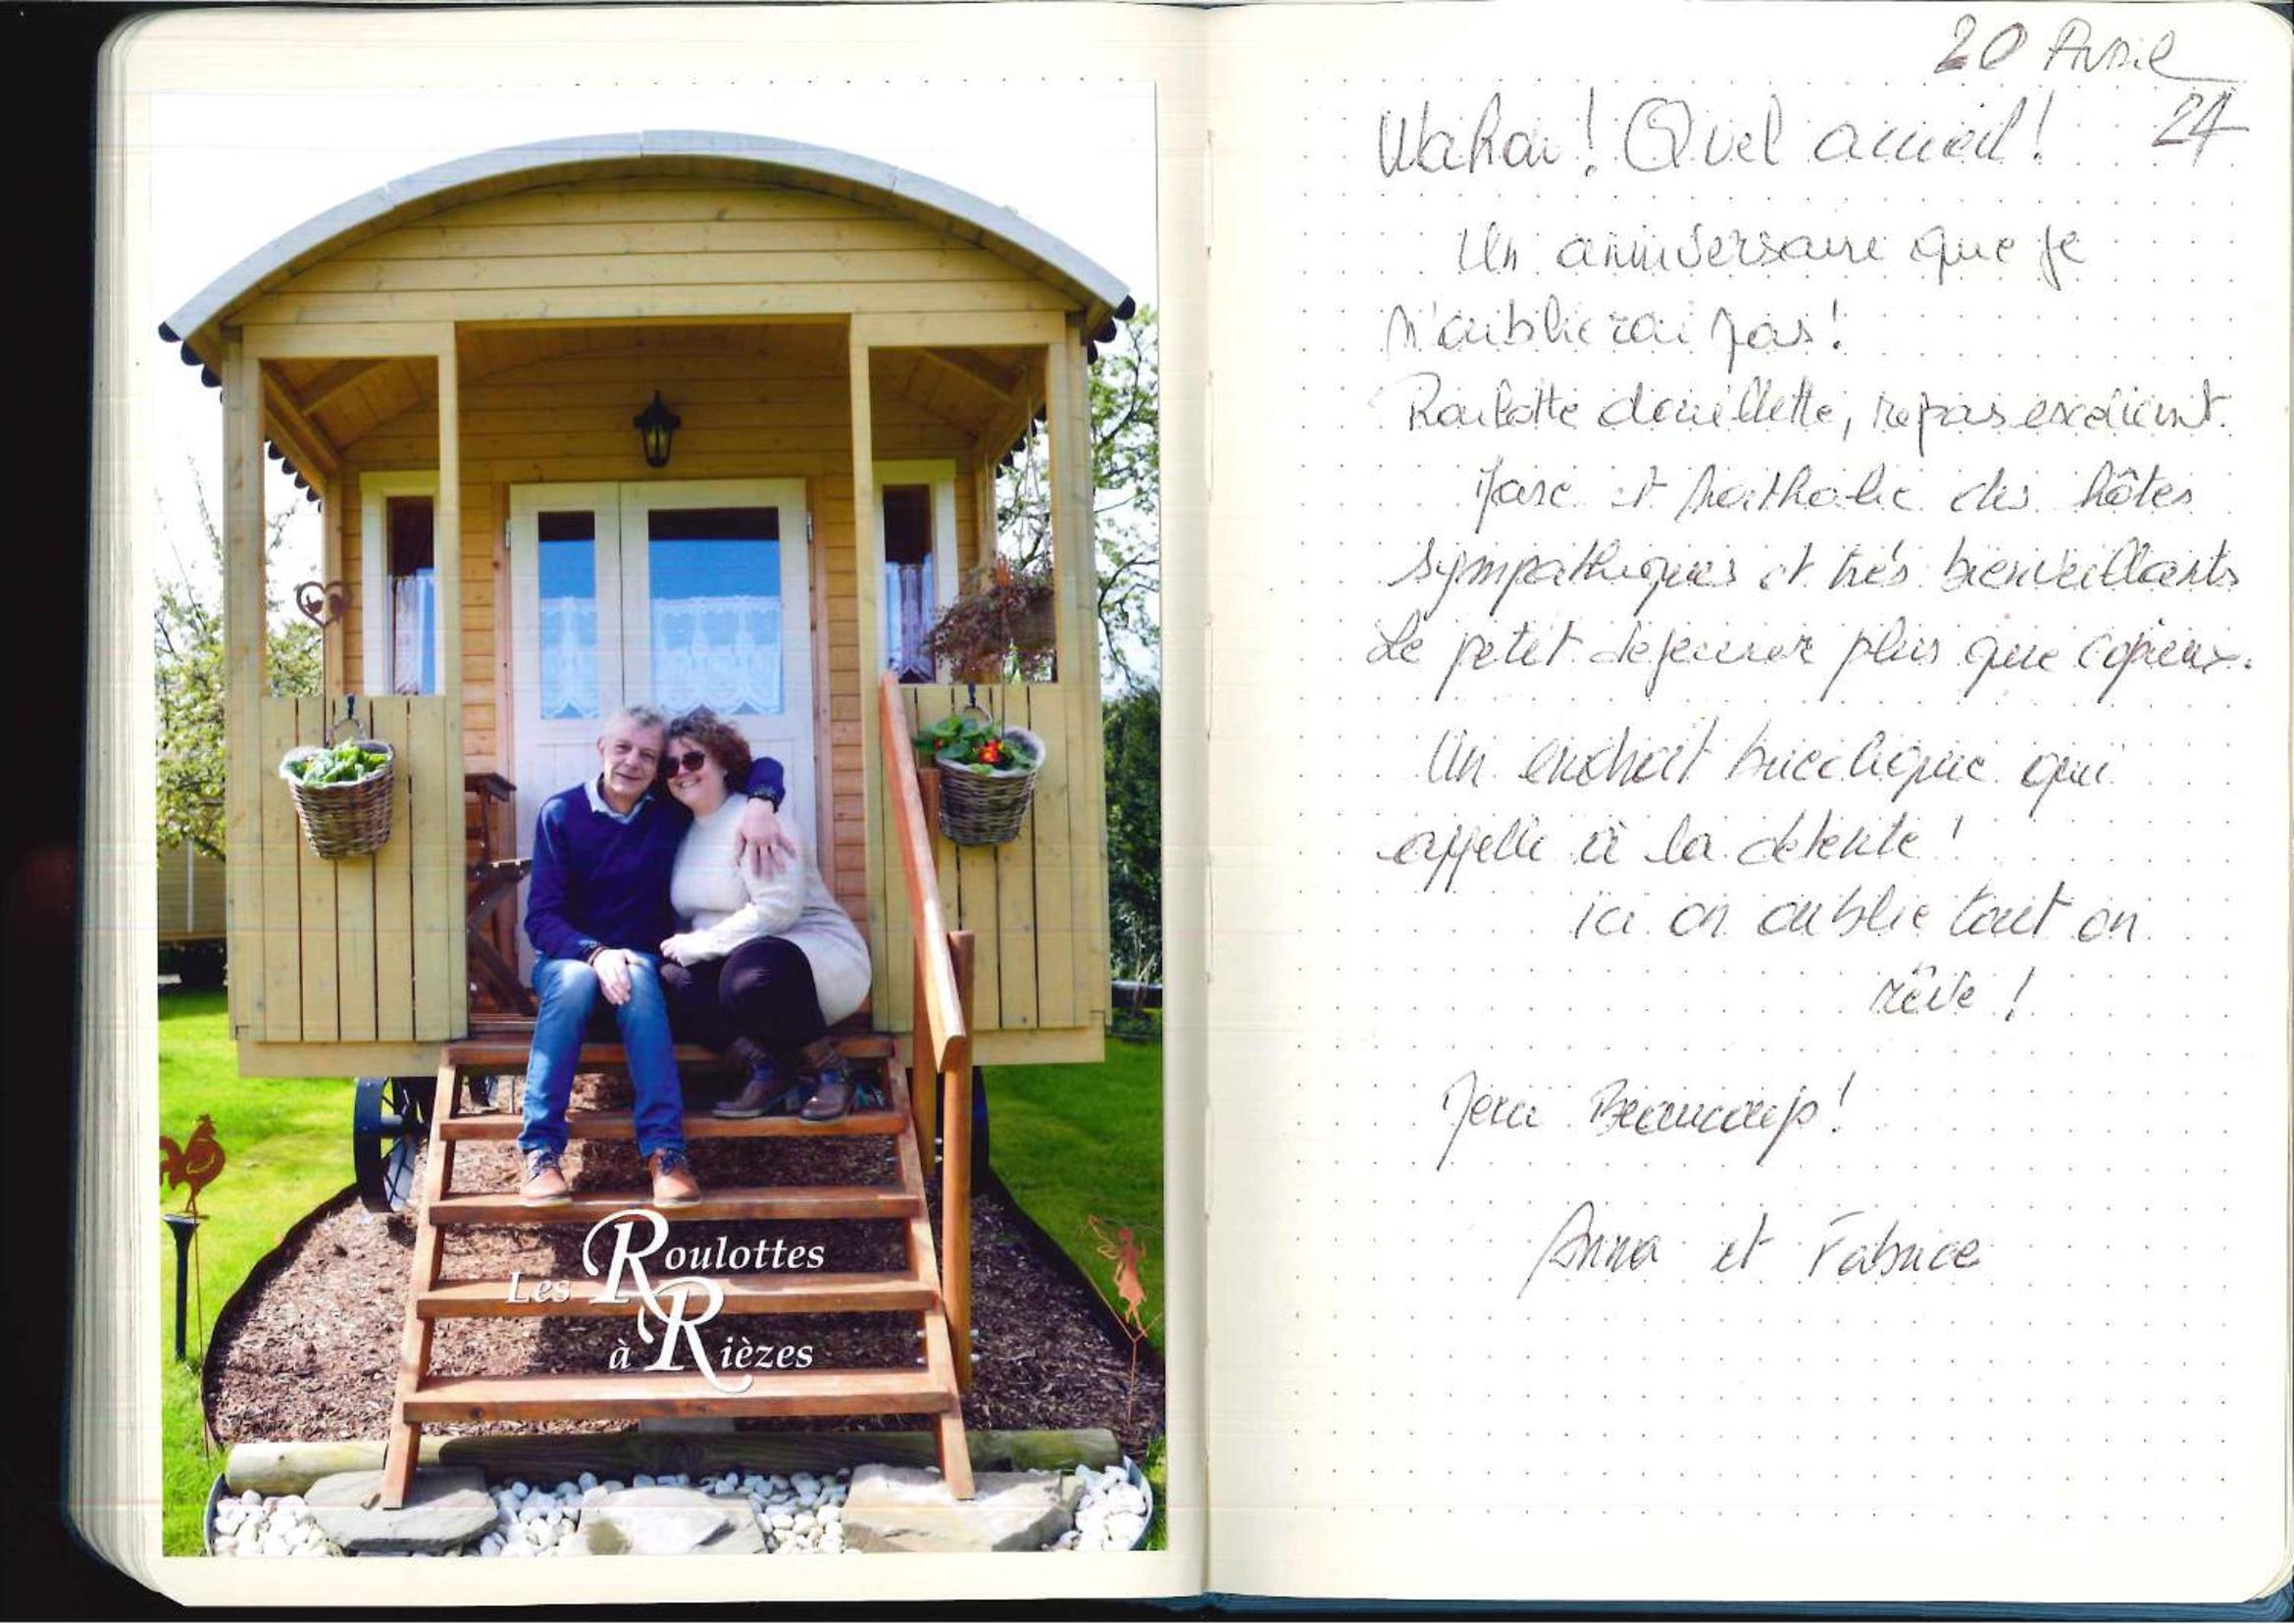 Les Roulottes
à Rièzes
20 Avril
24
Wahou! Quel accueil!
Un anniversaire que je
n'oublierai pas!
Roulotte douillette, repas excellent.
Marc et Nathalie des hôtes
sympathiques et très bienveillants
Le petit dejeuner plus que copieux.
Un endroit bucolique qui
appelle à la détente!
ici on oublie tout on
rêve!
Beaucoup!
Anna et Fabrice